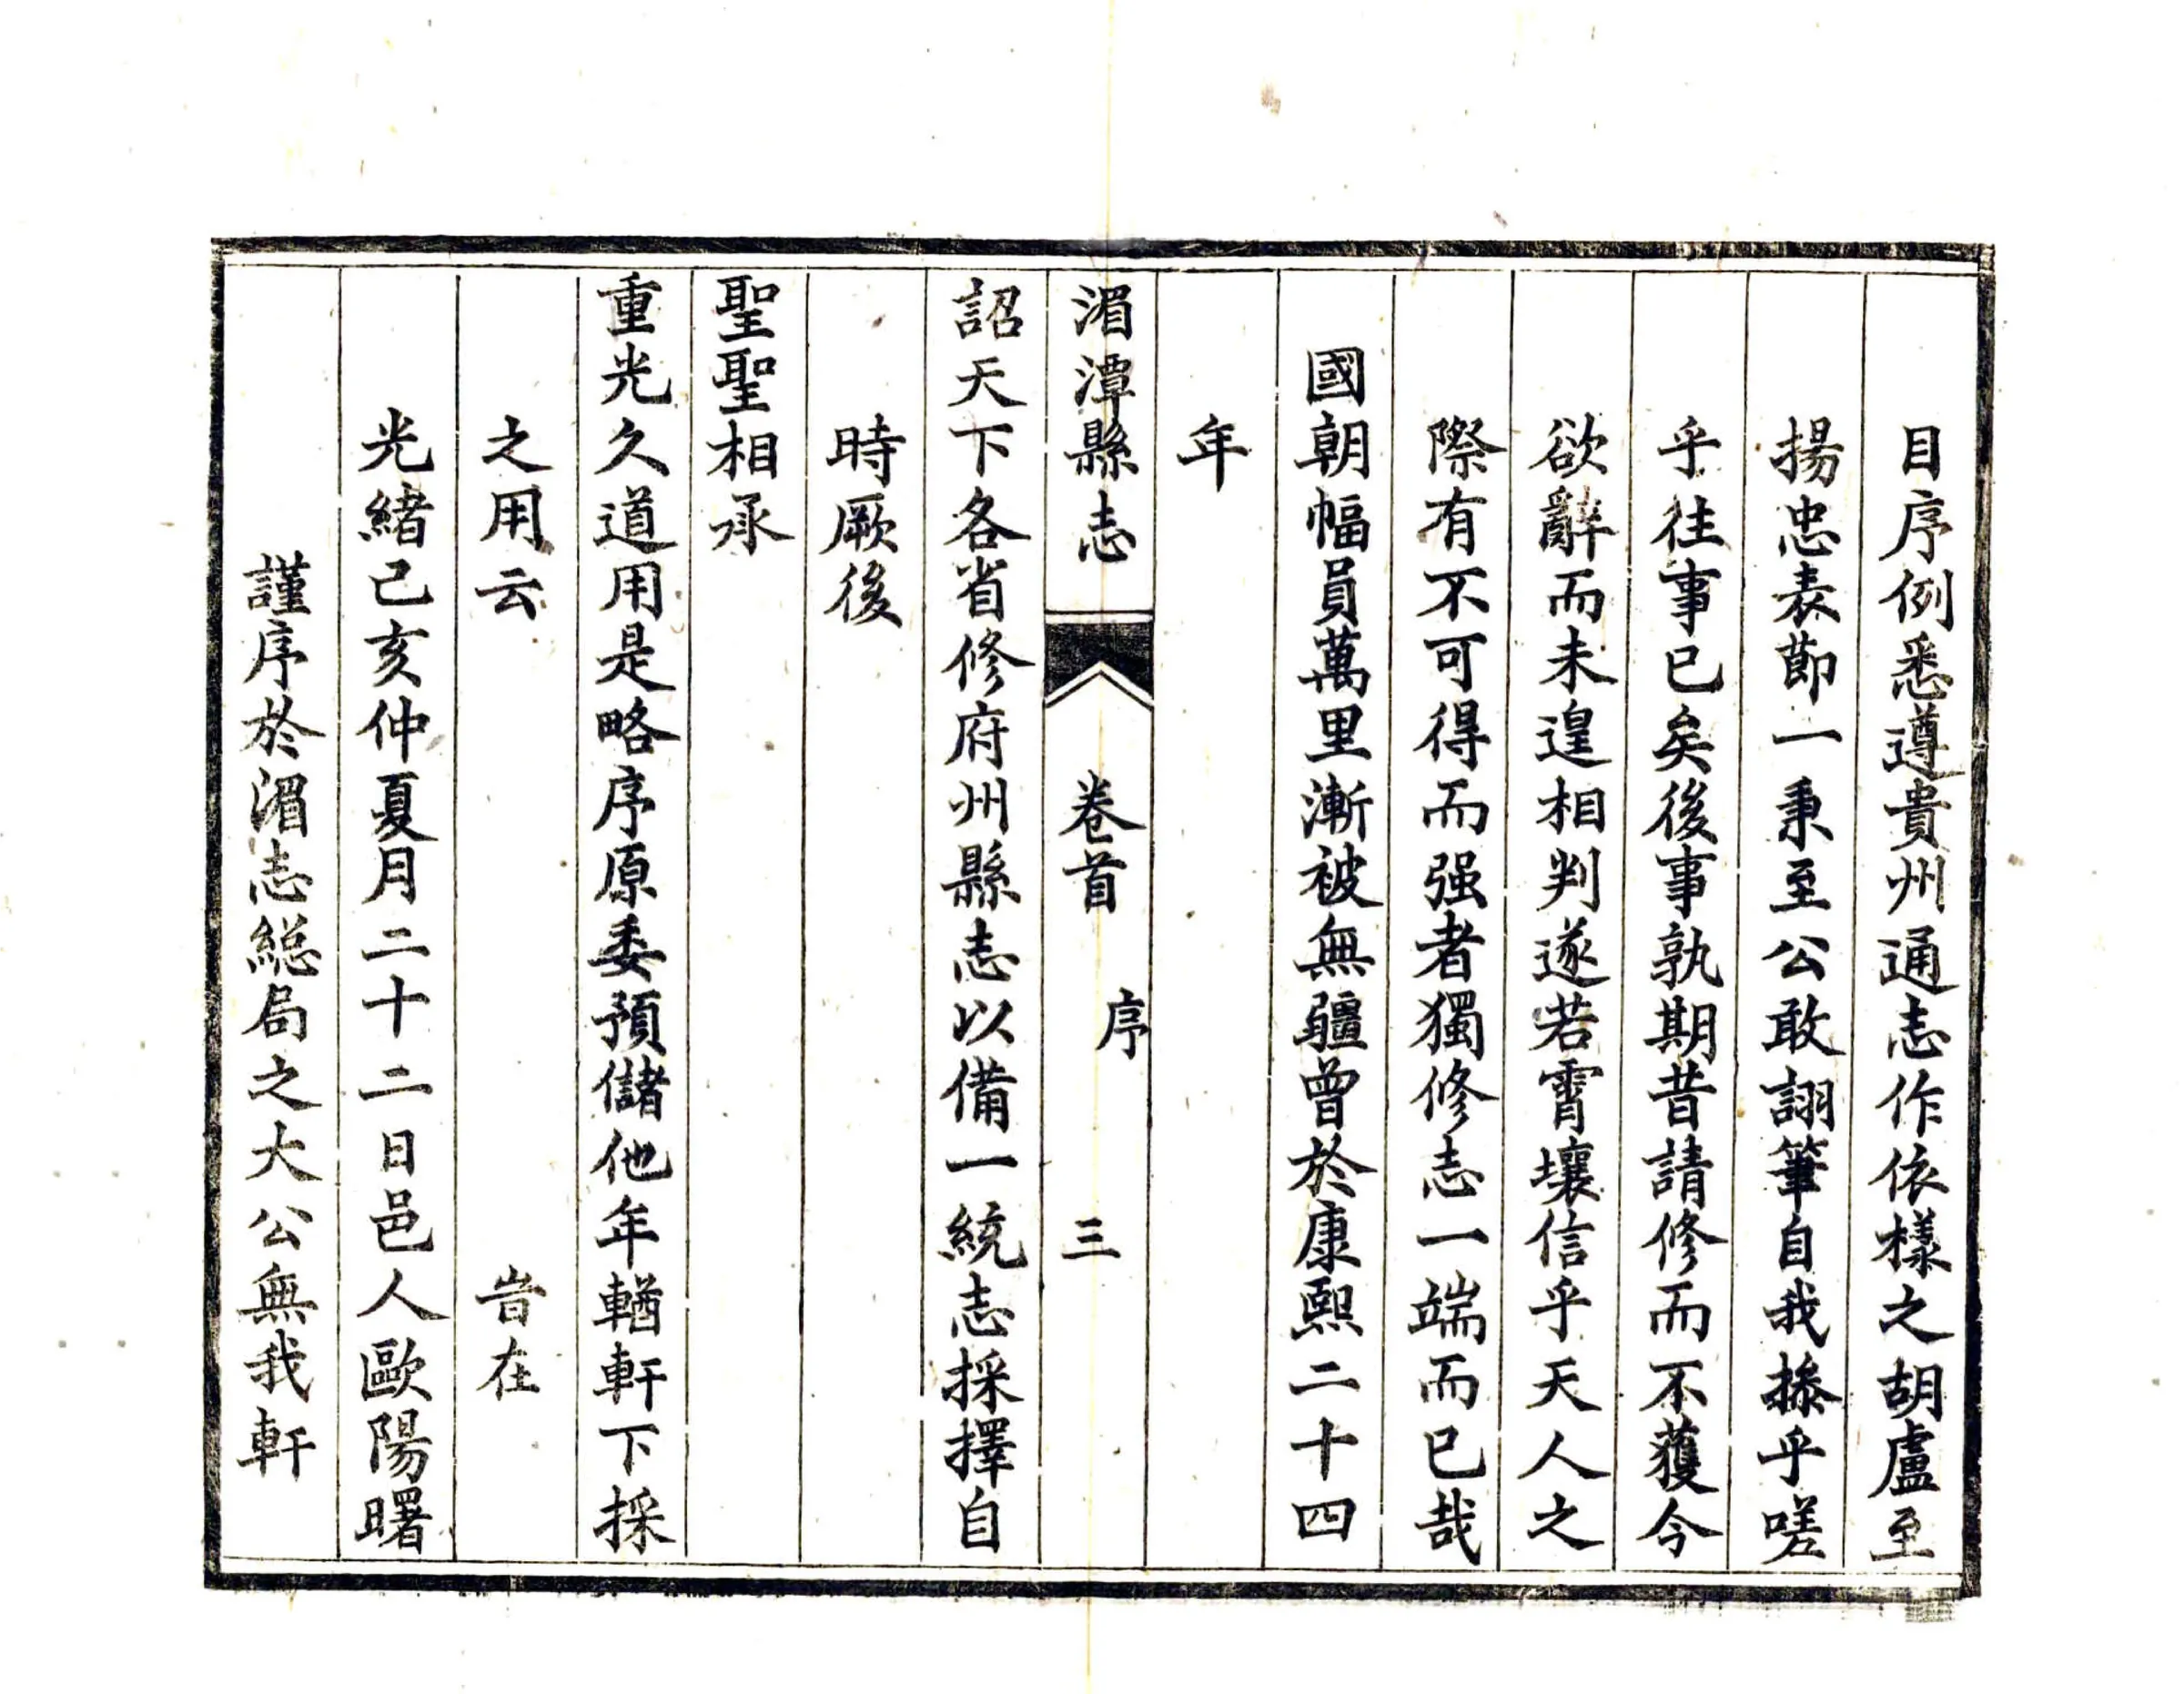 目序例悉遵貴州通志作依樣之胡盧至
揚忠表節一秉至公敢詡筆自我摻乎嗟
乎往事已矣後事孰期昔請修而不獲今
欲辭而未遑相判遂若霄壤信乎天人之
際有不可得而强者獨修志一端而已哉
國朝幅員萬里漸被無疆曾於康熙二十四
年
湄潭縣志 卷首 序 三
詔天下各省修府州縣志以備一統志採擇自
時厥後
聖聖相承
重光久道用是略序原委預儲他年輶軒下採
之用云 旹在
光緒己亥仲夏月二十二日邑人歐陽曙
謹序於湄志総局之大公無我軒